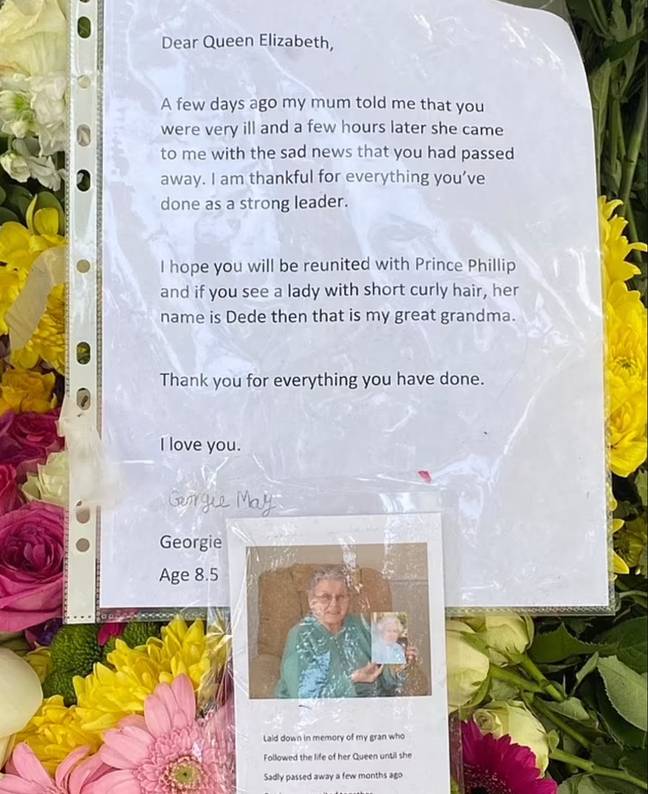 Dear Queen Elizabeth,
A few days ago my mum told me that you
were very ill and a few hours later she came
to me with the sad news that you had passed
away. I am thankful for everything you've
done as a strong leader.
I hope you will be reunited with Prince Phillip
and if you see a lady with short curly hair, her
name is Dede then that is my great grandma.
Thank you for everything you have done.
I love you.
Georgie May
Georgie
Age 8.5
Laid down in memory of my gran who
Followed the life of her Queen until she
Sadly passed away a few months ago